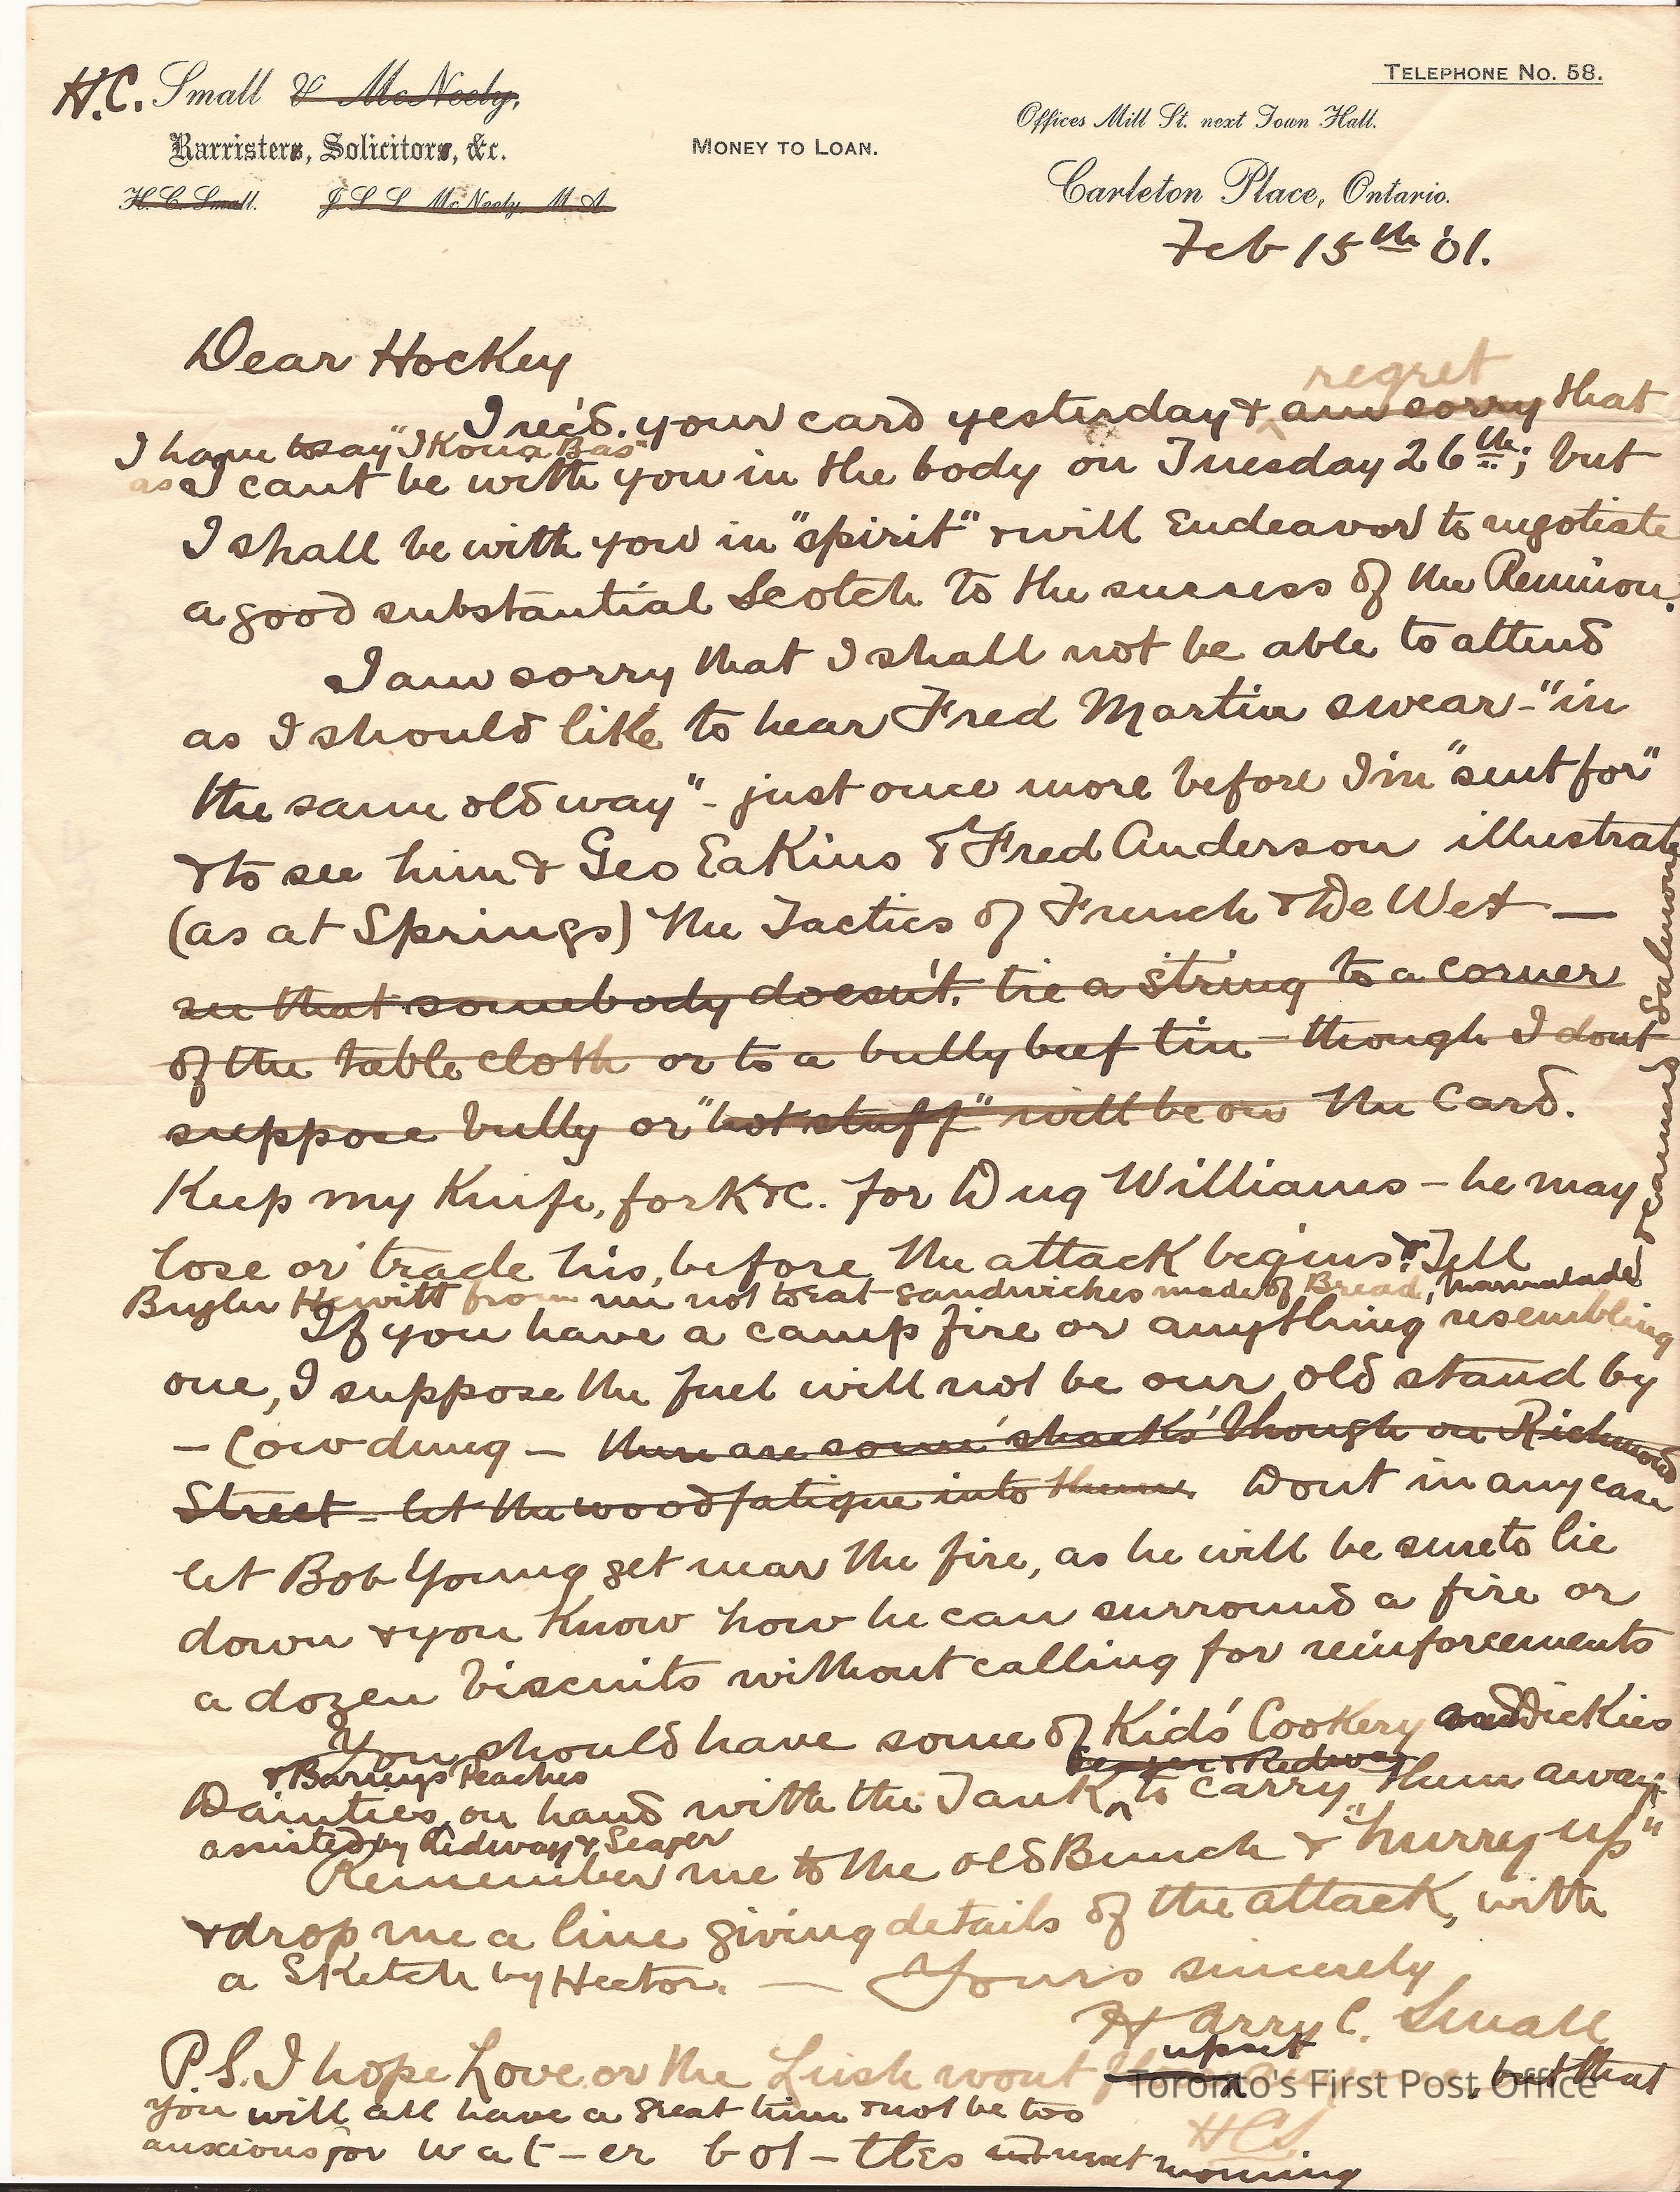 H.C. Small & McNeely,
Barristers, Solicitors, &c.
H. C. Small. J. S. L. McNeely, M. A.
MONEY TO LOAN.
TELEPHONE NO. 58.
Offices Mill St. next Town Hall.
Carleton Place, Ontario.
Feb 15th '01.
Dear Hockey
regret
I rec'd. your card yesterday & am sorry that
I have to say "I Kona Bas"
as I cant be with you in the body on Tuesday 26th; but
I shall be with you in "spirit" & will Endeavor to negotiate
a good substantial Scotch to the success of the Reunion.
I am sorry that I shall not be able to attend
as I should like to hear Fred Martin swear - "in
the same old way" - just once more before I'm "sent for"
& to see him & Geo Eakins & Fred Anderson illustrate
(as at Springs) the Tactics of French & De Wet —
see that somebody doesn't. tie a string to a corner
of the table cloth or to a bully beef tin - though I dont
suppose bully or "hot stuff" will be on the Card.
Keep my Knife, fork &c. for Dug Williams - he may
lose or trade his, before the attack begins. & Tell
Bugler Hewitt from me not to eat sandwiches made of Bread, marmalade
& canned Salmon
If you have a camp fire or anything resembling
one, I suppose the fuel will not be our old stand by
- Cow dung - there are some 'shacks' though on Richmond
Street - let the wood fatigue into them. Dont in any case
let Bob Young get near the fire, as he will be sure to lie
down & you Know how he can surround a fire or
a dozen biscuits without calling for reinforcements
You should have some of Kid's Cookery and Dickies
& Barneys Peaches
Seager & Ridway
Dainties, on hand with the Tank to carry them away.
assisted by Ridway & Seager
Remember me to the old Bunch & "hurry up"
& drop me a line giving details of the attack, with
a Sketch by Hector. — Yours sincerely
Harry C. Small
upset
P.S. I hope Love or the Lush wont , but that
Toronto's First Post Office
you will all have a great time & not be too
HCS.
anxious for wat-er bot-tles next morning